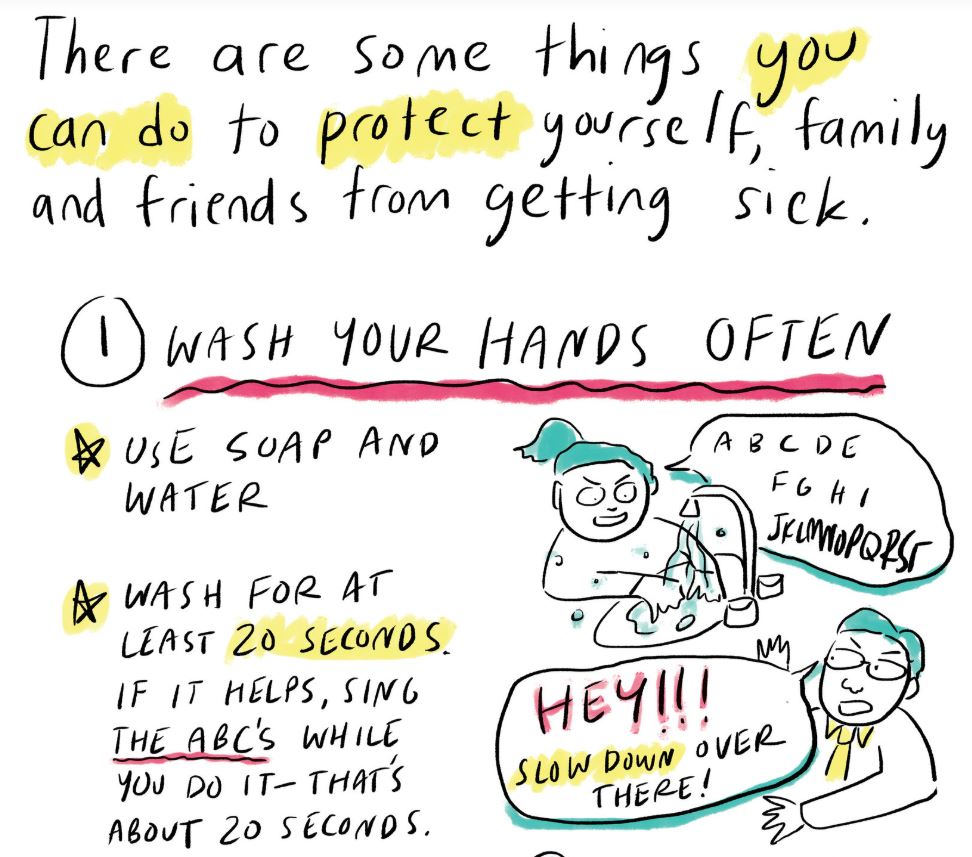 There are some things you
can do to protect yourself, family
and friends from getting sick.
1 WASH YOUR HANDS OFTEN
USE SOAP AND
WATER
WASH FOR AT
LEAST 20 SECONDS.
IF IT HELPS, SING
THE ABC'S WHILE
YOU DO IT—THAT'S
ABOUT 20 SECONDS.
A B C D E
F G H I
JKLMNOPQRST
HEY!!!
SLOW DOWN OVER
THERE!